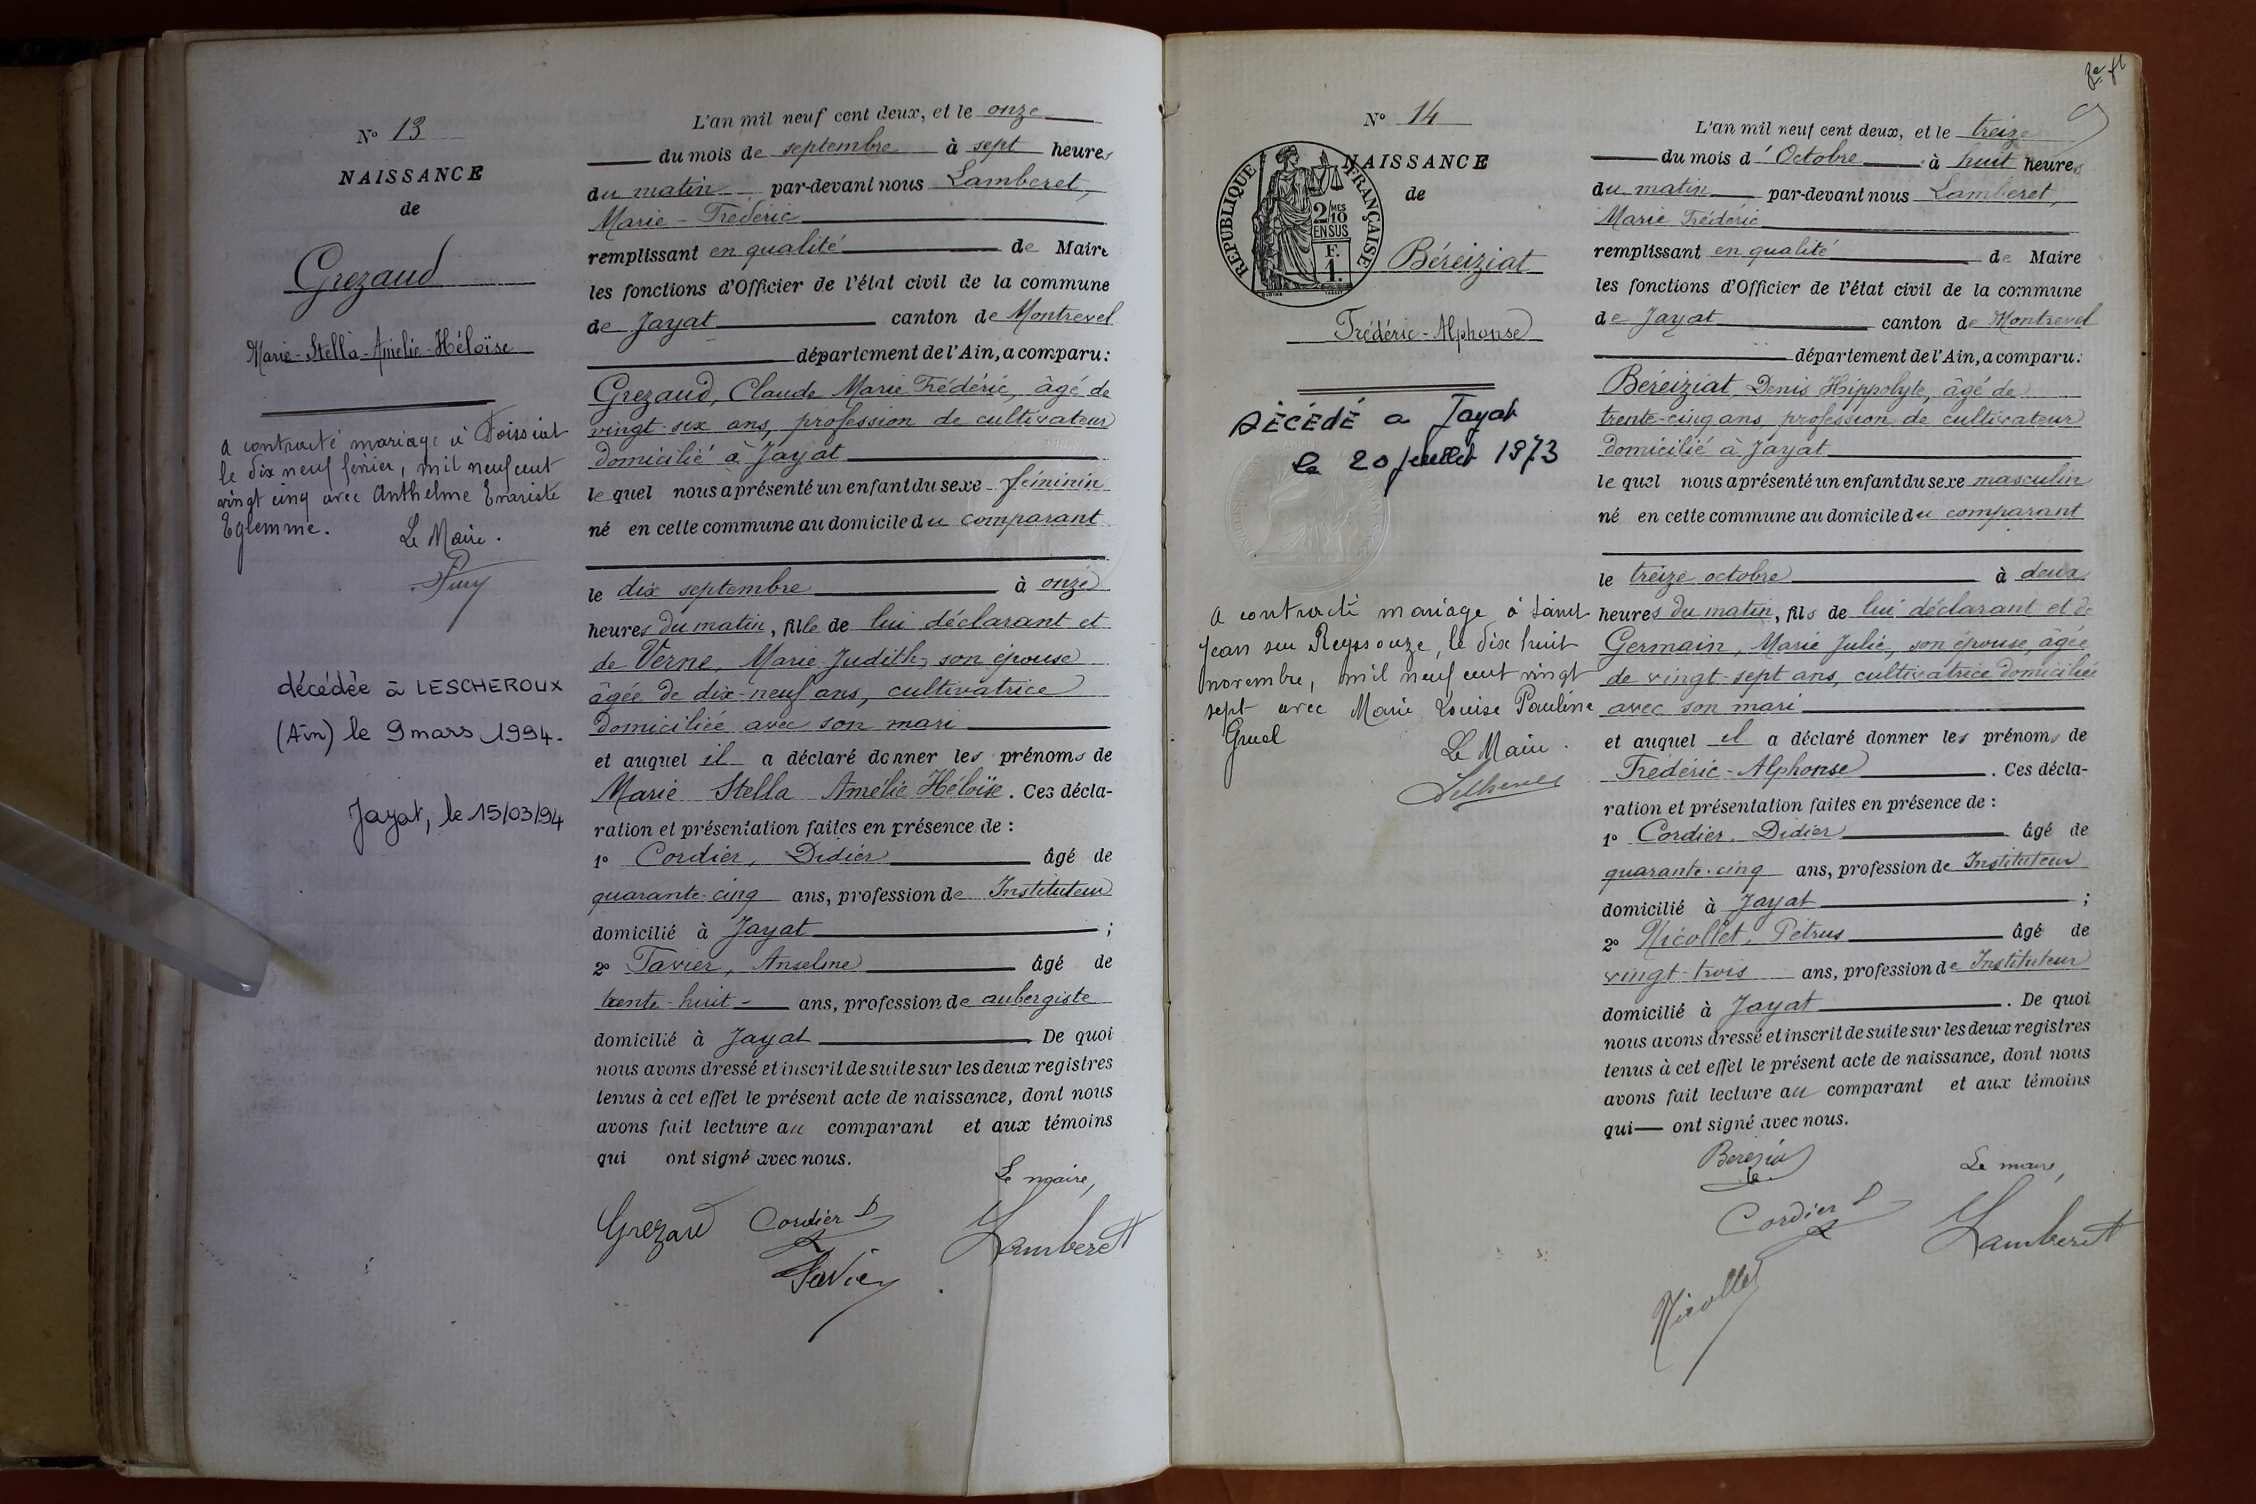 N° 13
NAISSANCE
de
Grezaud
Marie-Stella-Amélie-Héloïse
a contracté mariage à Foissiat
le dix neuf février, mil neuf cent
vingt cinq avec Anthelme Evariste
Eglemme.
Le Maire.
décédée à LESCHEROUX
(Ain) le 9 mars 1994.
Jayat, le 15/03/94
L'an mil neuf cent deux, et le onze
du mois de septembre à sept heures
du matin par-devant nous Lamberet,
Marie-Frédéric
remplissant en qualité de Maire
les fonctions d'Officier de l'état civil de la commune
de Jayat canton de Montrevel
département de l'Ain, a comparu:
Grezaud, Claude Marie Frédéric, âgé de
vingt-six ans, profession de cultivateur
domicilié à Jayat
lequel nous a présenté un enfant du sexe féminin
né en cette commune au domicile du comparant
le dix septembre à onze
heures du matin, fille de lui déclarant et
de Verne, Marie Judith, son épouse
âgée de dix-neuf ans, cultivatrice
domiciliée avec son mari
et auquel il a déclaré donner les prénoms de
Marie Stella Amélie Héloïse. Ces décla-
ration et présentation faites en présence de :
1° Cordier, Didier âgé de
quarante-cinq ans, profession de Instituteur
domicilié à Jayat ;
2° Tavier, Anselme âgé de
trente-huit- ans, profession de aubergiste
domicilié à Jayat. De quoi
nous avons dressé et inscrit de suite sur les deux registres
tenus à cet effet le présent acte de naissance, dont nous
avons fait lecture au comparant et aux témoins
qui ont signé avec nous.
Le maire,
Grezaud Cordier D Lamberet
Tavier
N° 14
NAISSANCE
de
REPUBLIQUE FRANÇAISE
2/10 MES
EN SUS
F.
1.
Béreiziat
Frédéric-Alphonse
DÉCÉDÉ a Jayat
le 20 juillet 1973
a contracté mariage à Saint
Jean sur Reyssouze, le dix huit
novembre, mil neuf cent vingt
sept avec Marie Louise Pauline
Gruel
Le Maire.
L'an mil neuf cent deux, et le treize
du mois d'Octobre à huit heures
du matin par-devant nous Lamberet,
Marie Frédéric
remplissant en qualité de Maire
les fonctions d'Officier de l'état civil de la commune
de Jayat canton de Montrevel
département de l'Ain, a comparu:
Béreiziat, Denis Hippolyte, âgé de
trente-cinq ans, profession de cultivateur
domicilié à Jayat
lequel nous a présenté un enfant du sexe masculin
né en cette commune au domicile du comparant
le treize octobre à deux
heures du matin, fils de lui déclarant et de
Germain, Marie Julie, son épouse, âgée
de vingt-sept ans, cultivatrice domiciliée
avec son mari
et auquel il a déclaré donner les prénoms de
Frédéric-Alphonse. Ces décla-
ration et présentation faites en présence de :
1° Cordier, Didier âgé de
quarante-cinq ans, profession de Instituteur
domicilié à Jayat ;
2° Nicollet, Pétrus âgé de
vingt-trois ans, profession de Instituteur
domicilié à Jayat. De quoi
nous avons dressé et inscrit de suite sur les deux registres
tenus à cet effet le présent acte de naissance, dont nous
avons fait lecture au comparant et aux témoins
qui ont signé avec nous.
Le maire,
Cordier D Lamberet
Nicollet